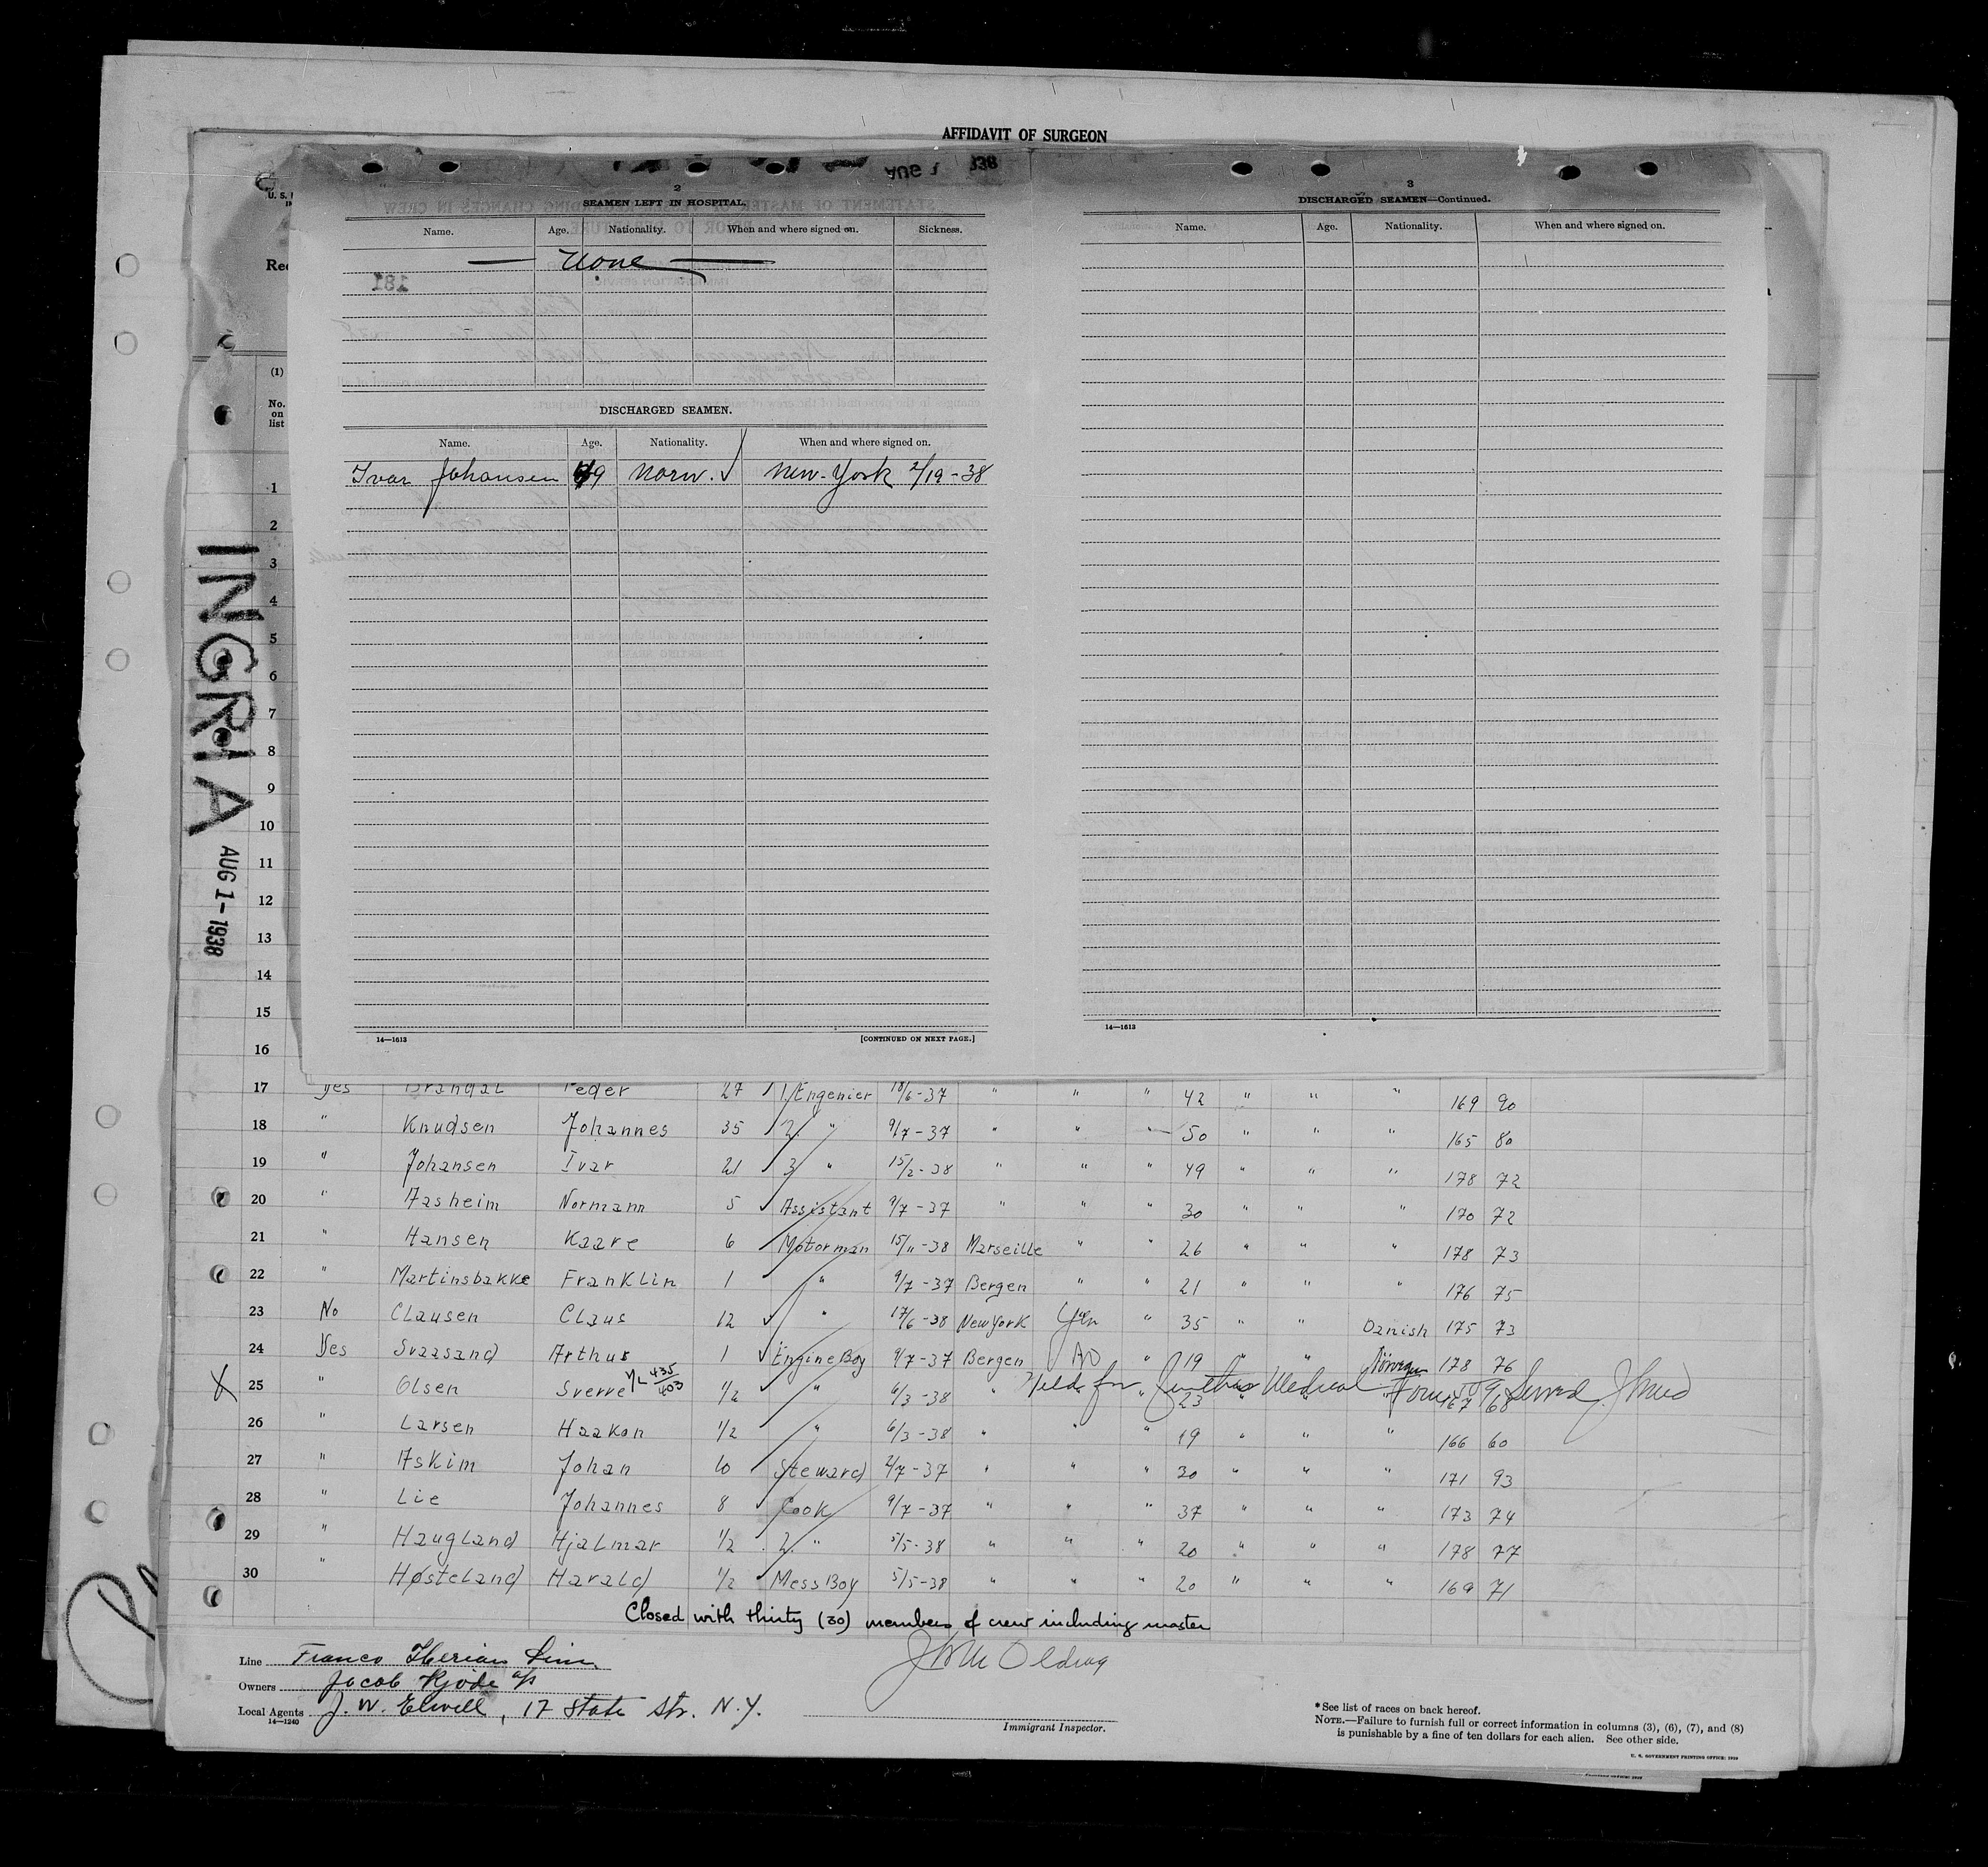 AFFIDAVIT OF SURGEON
AUG 1 1938
2
SEAMEN LEFT IN HOSPITAL.
Name. Age. Nationality. When and where signed on. Sickness.
None
DISCHARGED SEAMEN.
Name. Age. Nationality. When and where signed on.
Ivar Johansen 49 Norw. ✓ New-York 2/19-38
14—1613
[CONTINUED ON NEXT PAGE.]
3
DISCHARGED SEAMEN—Continued.
Name. Age. Nationality. When and where signed on.
14—1613
U. S.
(1)
No. on list
INGRIA
AUG 1-1938
1
2
3
4
5
6
7
8
9
10
11
12
13
14
15
16
17 Yes Brandal Peder 27 ✓ 1/Engenier 18/6-37 " " " 42 " " " 169 90
18 " Knudsen Johannes 35 ✓ 2. " 9/7-37 " " " 50 " " " 165 80
19 " Johansen Ivar 21 ✓ 3 " 15/2-38 " " " 49 " " " 178 72
20 " Aasheim Normann 5 ✓ Assistant 9/7-37 " " " 30 " " " 170 72
21 " Hansen Kaare 6 ✓ Motorman 15/11-38 Marseille " " 26 " " " 178 73
22 " Martinsbakke Franklin 1 ✓ " 9/7-37 Bergen " " 21 " " " 176 75
23 No Clausen Claus 12 ✓ " 17/6-38 New York Yes " 35 " " Danish 175 73
24 Yes Svaasand Arthur 1 ✓ Engine Boy 9/7-37 Bergen No " 19 " " Norwegian 178 76
X 25 " Olsen Sverre 435/403 1/2 " 6/3-38 " Held for further Medical Form 509 Served " 23 167 68
26 " Larsen Haakon 1/2 " 6/3-38 " " " 19 " " " 166 60
27 " Askim Johan 10 ✓ Steward 2/7-37 " " " 30 " " " 171 93
28 " Lie Johannes 8 ✓ Cook 9/7-37 " " " 37 " " " 173 74
29 " Haugland Hjalmar 1/2 2. " 5/5-38 " " " 20 " " " 178 77
30 " Høsteland Harald 1/2 ✓ Mess Boy 5/5-38 " " " 20 " " " 169 71
Closed with thirty (30) members of crew including master
Line Franco Iberian Line
Owners Jacob Kjøde A/S
Local Agents J. W. Elwell, 17 State Str. N.Y.
14—1240
Immigrant Inspector.
* See list of races on back hereof.
NOTE.—Failure to furnish full or correct information in columns (3), (6), (7), and (8)
is punishable by a fine of ten dollars for each alien. See other side.
U. S. GOVERNMENT PRINTING OFFICE: